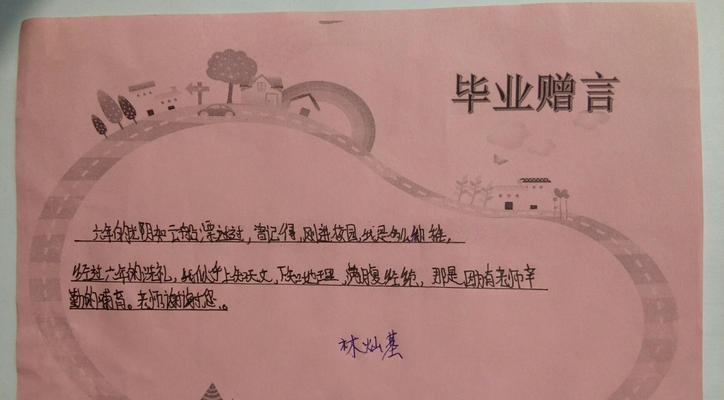 毕业赠言
六年的光阴如云般漂泊过，曾记得，刚进校园，我是多么幼稚。
经过六年的洗礼，我似乎上知天文，下知地理，满腹经纶，那是因为有老师辛
勤的哺育。老师谢谢您。
林灿基